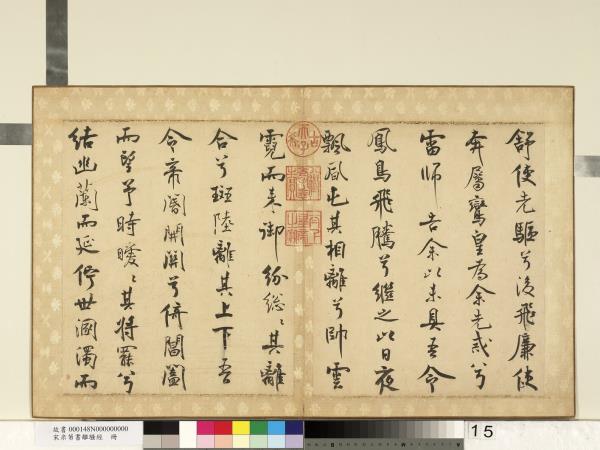 舒使先驅兮後飛廉使
奔屬鸞皇為余先戒兮
雷師告余以未具吾令
鳳鳥飛騰兮繼之以日夜
飄風屯其相離兮帥雲
霓而來御紛總〻其離
合兮斑陸離其上下吾
令帝閽開關兮倚閶闔
而望予時曖〻其將罷兮
結幽蘭而延佇世溷濁而
故書 000148N000000000
宋米芾書離騷經 冊
15